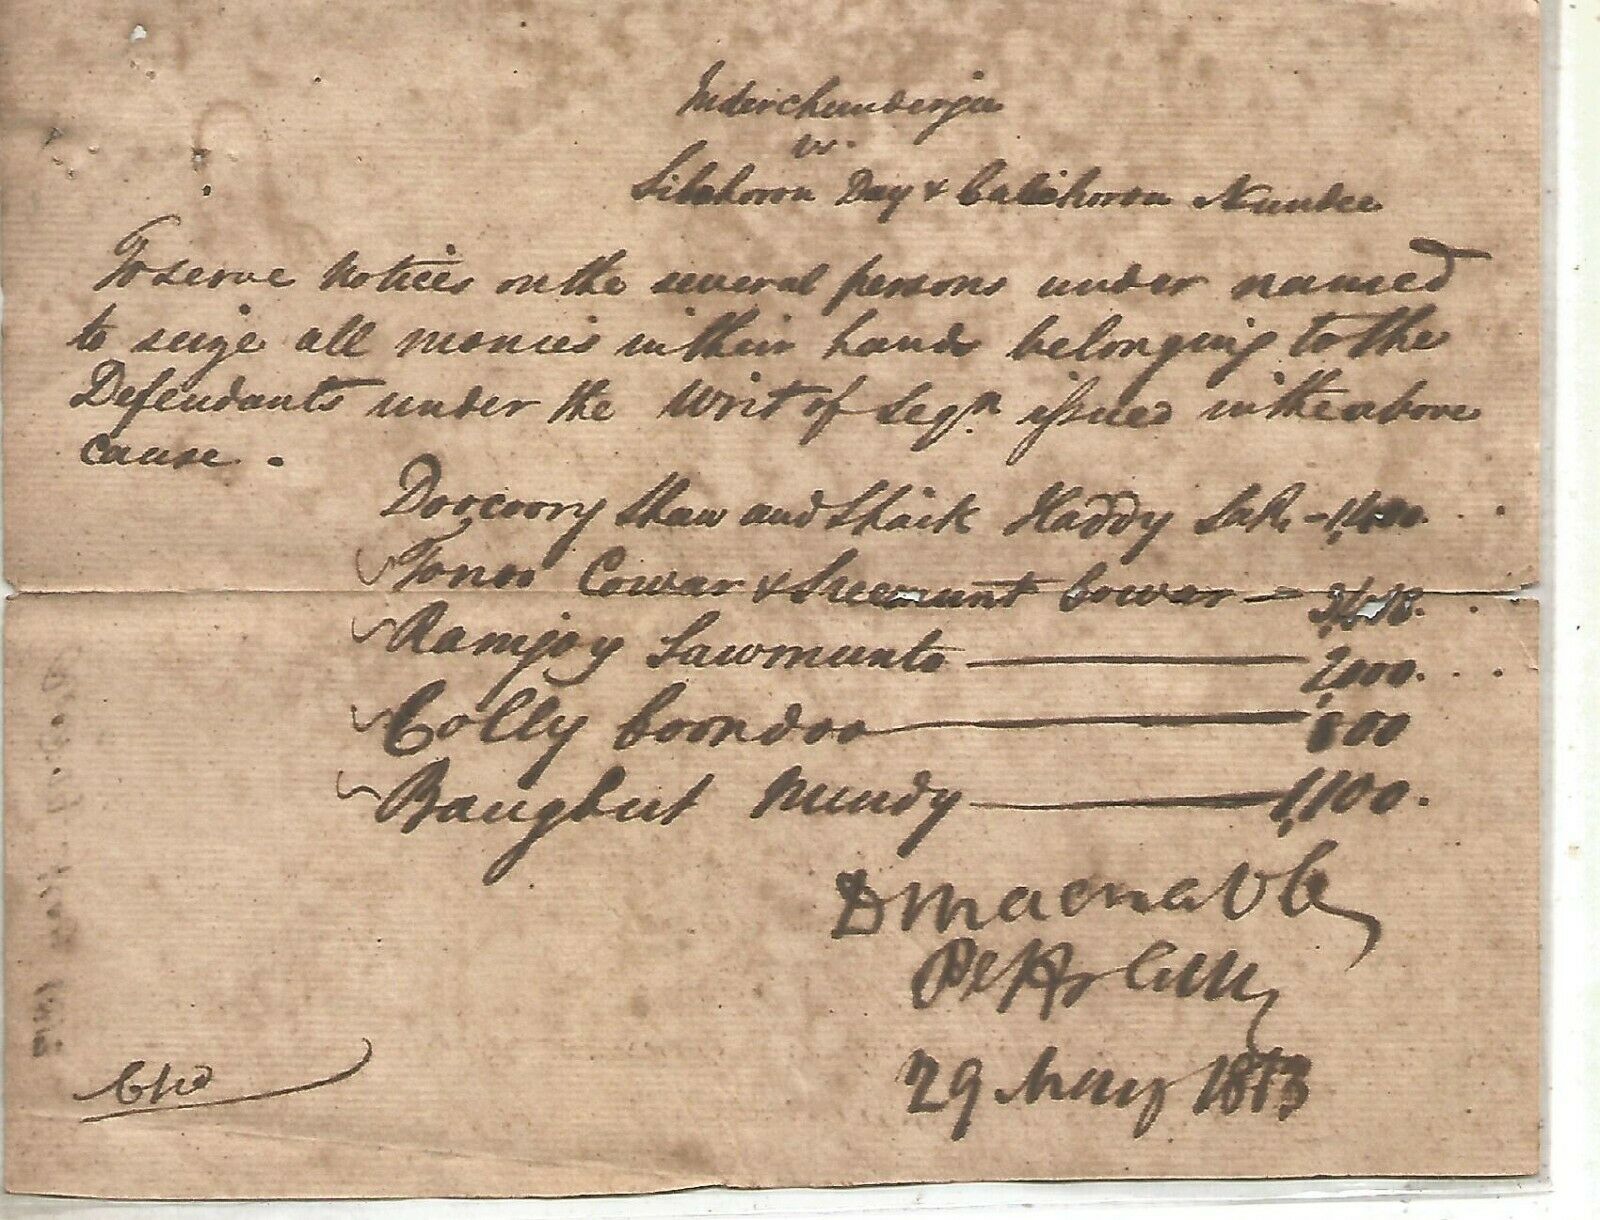 Inderchunderjee
vs.
Sibchoron Day & Calichoron Nundee
To serve Notices on the several persons under named
to seize all monies in their hands belonging to the
Defendants under the Writ of Seqn. issued in the above
cause.
Doocoory Shaw and Shaik Haddy Sa Rs -
Tonoo Cowar & Sreemunt Cowar -
Ramjoy Sawmunto 2,000.
Colly Coondoo 800
Baugbut Nundy 1,100.
D Macnabb
29 May 1813